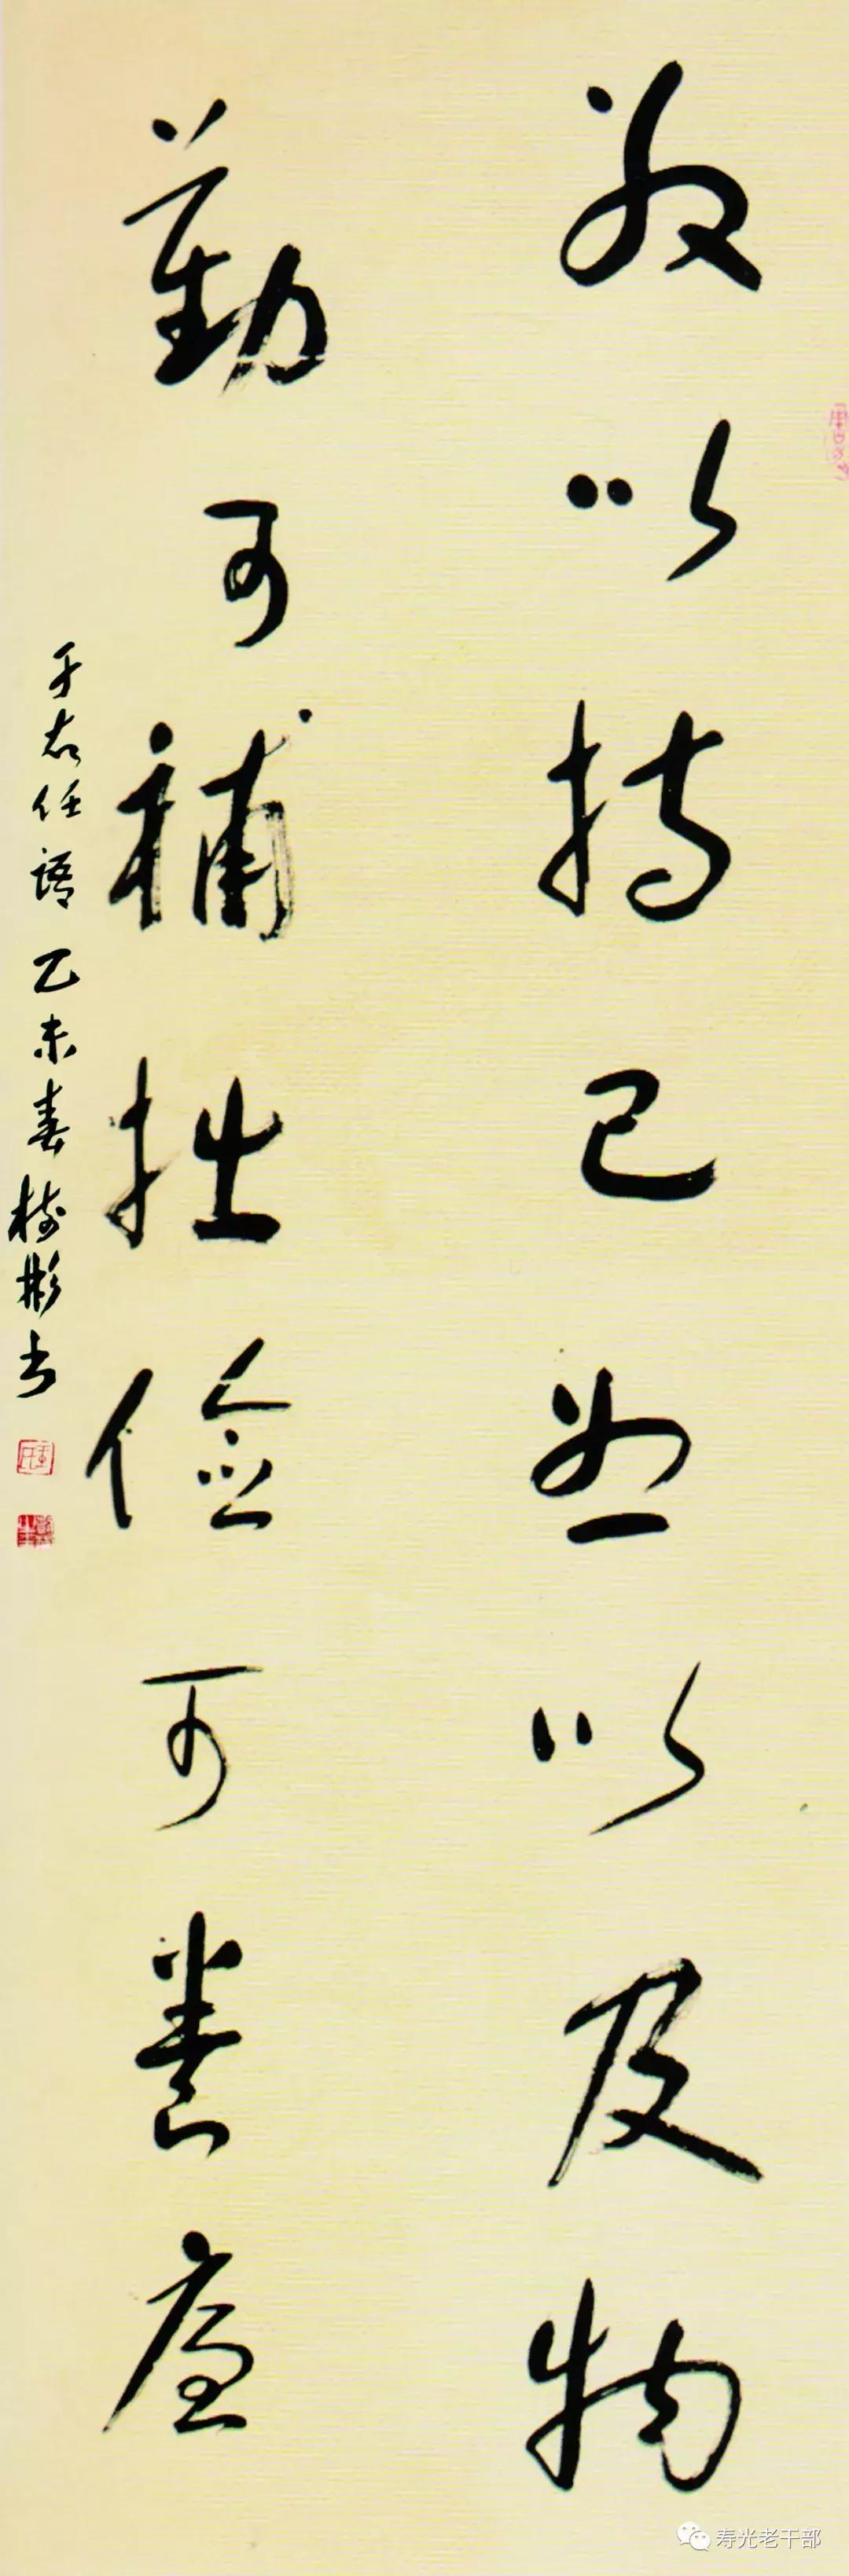 敬以持己恕以及物
勤可補拙儉可養廉
于右任語乙未春樹彬书
寿光老干部